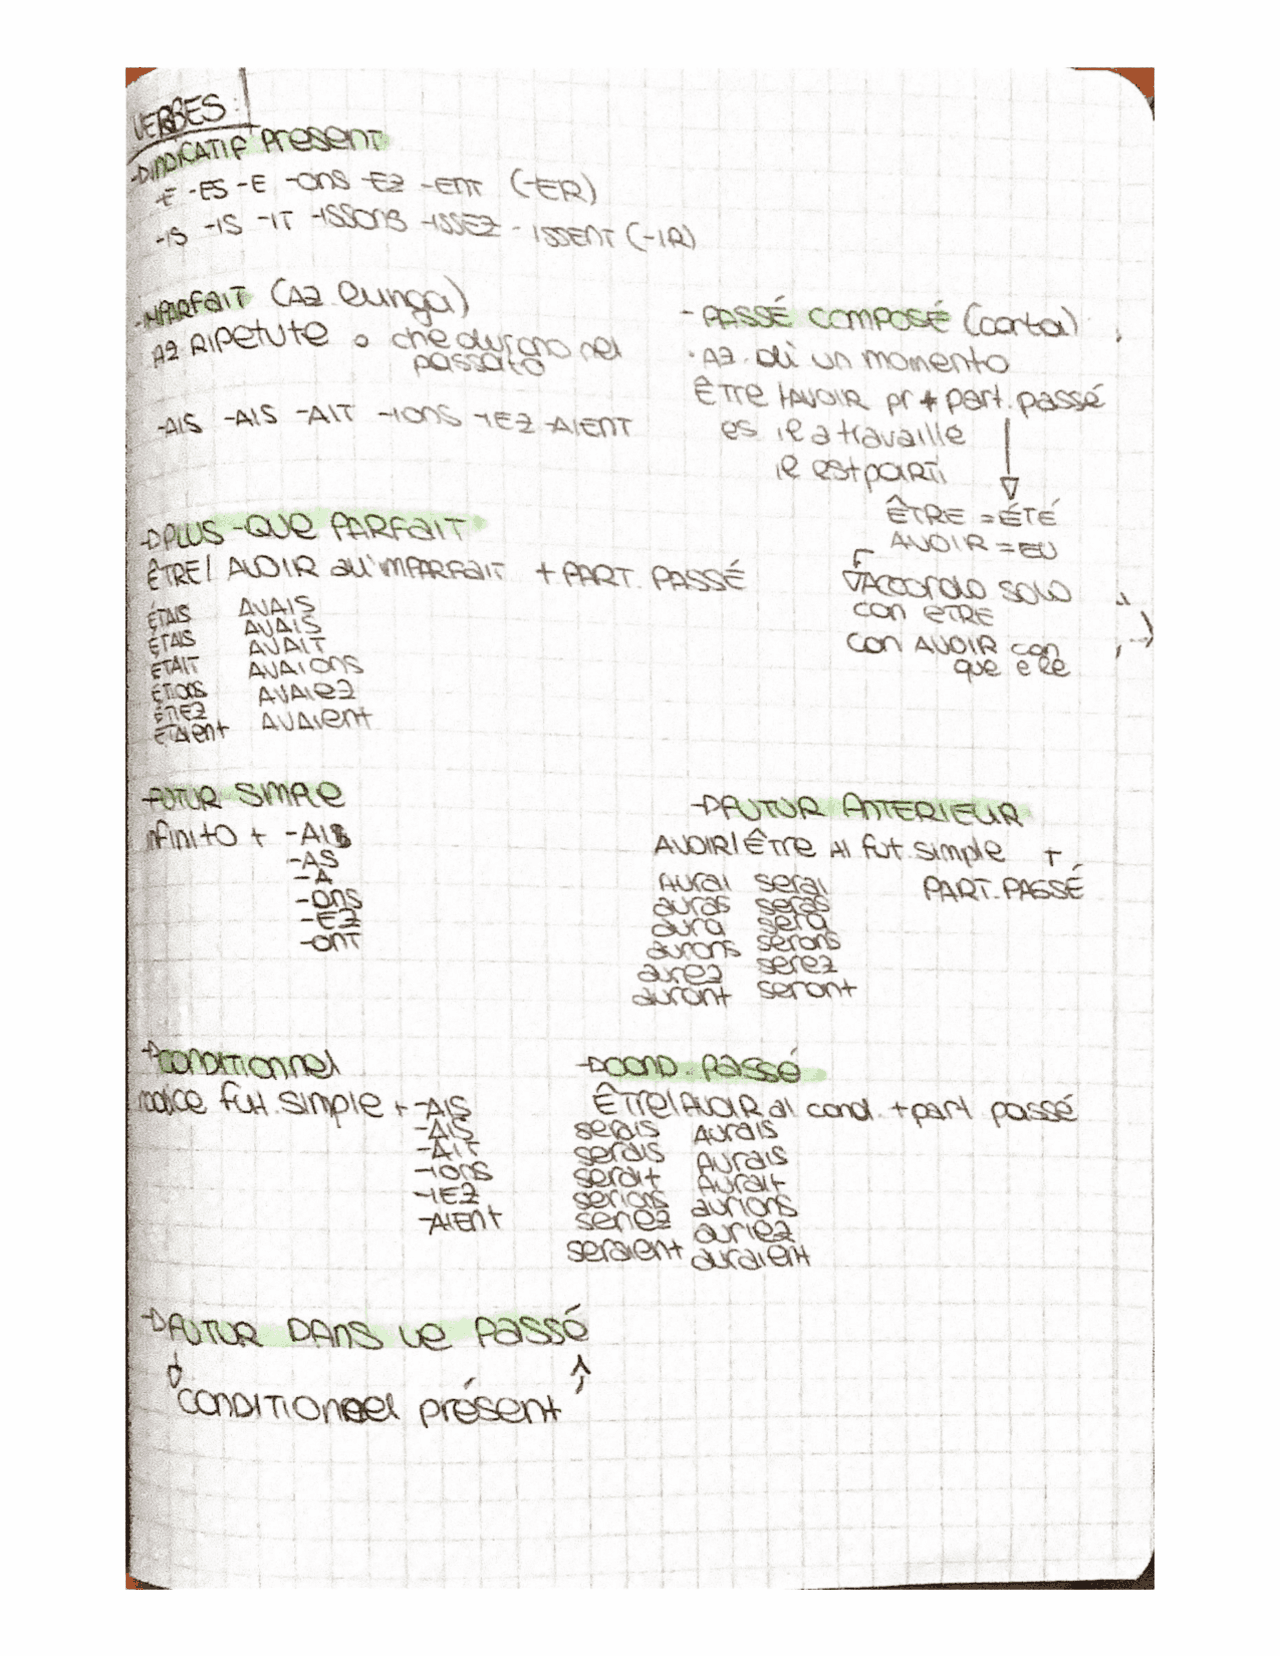 VERBES:
INDICATIF PRESENT
-E -ES -E -ONS -EZ -ENT (-ER)
-IS -IS -IT -ISSONS -ISSEZ -ISSENT (-IR)
-IMPARFAIT (AZ. lunga)
AZ RIPETUTE o che durano nel
passato
-AIS -AIS -AIT -IONS -IEZ -AIENT
- PASSÉ COMPOSÉ (corta)
· AZ. di un momento
ÊTRE / AVOIR pr + part. passé
es. il a travaille
il est parti
ÊTRE = ÉTÉ
AVOIR = EU
Accordo SOLO
con ETRE
con AVOIR con
que e le
PLUS-QUE PARFAIT
ÊTRE / AVOIR all'IMPARFAIT + PART. PASSÉ
ÉTAIS AVAIS
ÉTAIS AVAIS
ÉTAIT AVAIT
ÉTIONS AVAIONS
ÉTIEZ AVAIEZ
ÉTAIENT AVAIENT
-FUTUR SIMPLE
infinito + -AI
-AS
-A
-ONS
-EZ
-ONT
FUTUR ANTERIEUR
AVOIR / ÊTRE Al fut. simple +
PART. PASSÉ
AURAI serai
auras seras
aura sera
aurons serons
aurez serez
auront seront
CONDITIONNEL
radice fut. simple + -AIS
-AIS
-AIT
-IONS
-IEZ
-AIENT
COND. PASSÉ
ÊTRE / AVOIR al cond. + part. passé
serais AURAIS
serais AURAIS
serait AURAIT
serions aurions
seriez auriez
seraient auraient
FUTUR DANS LE PASSÉ
CONDITIONNEL présent